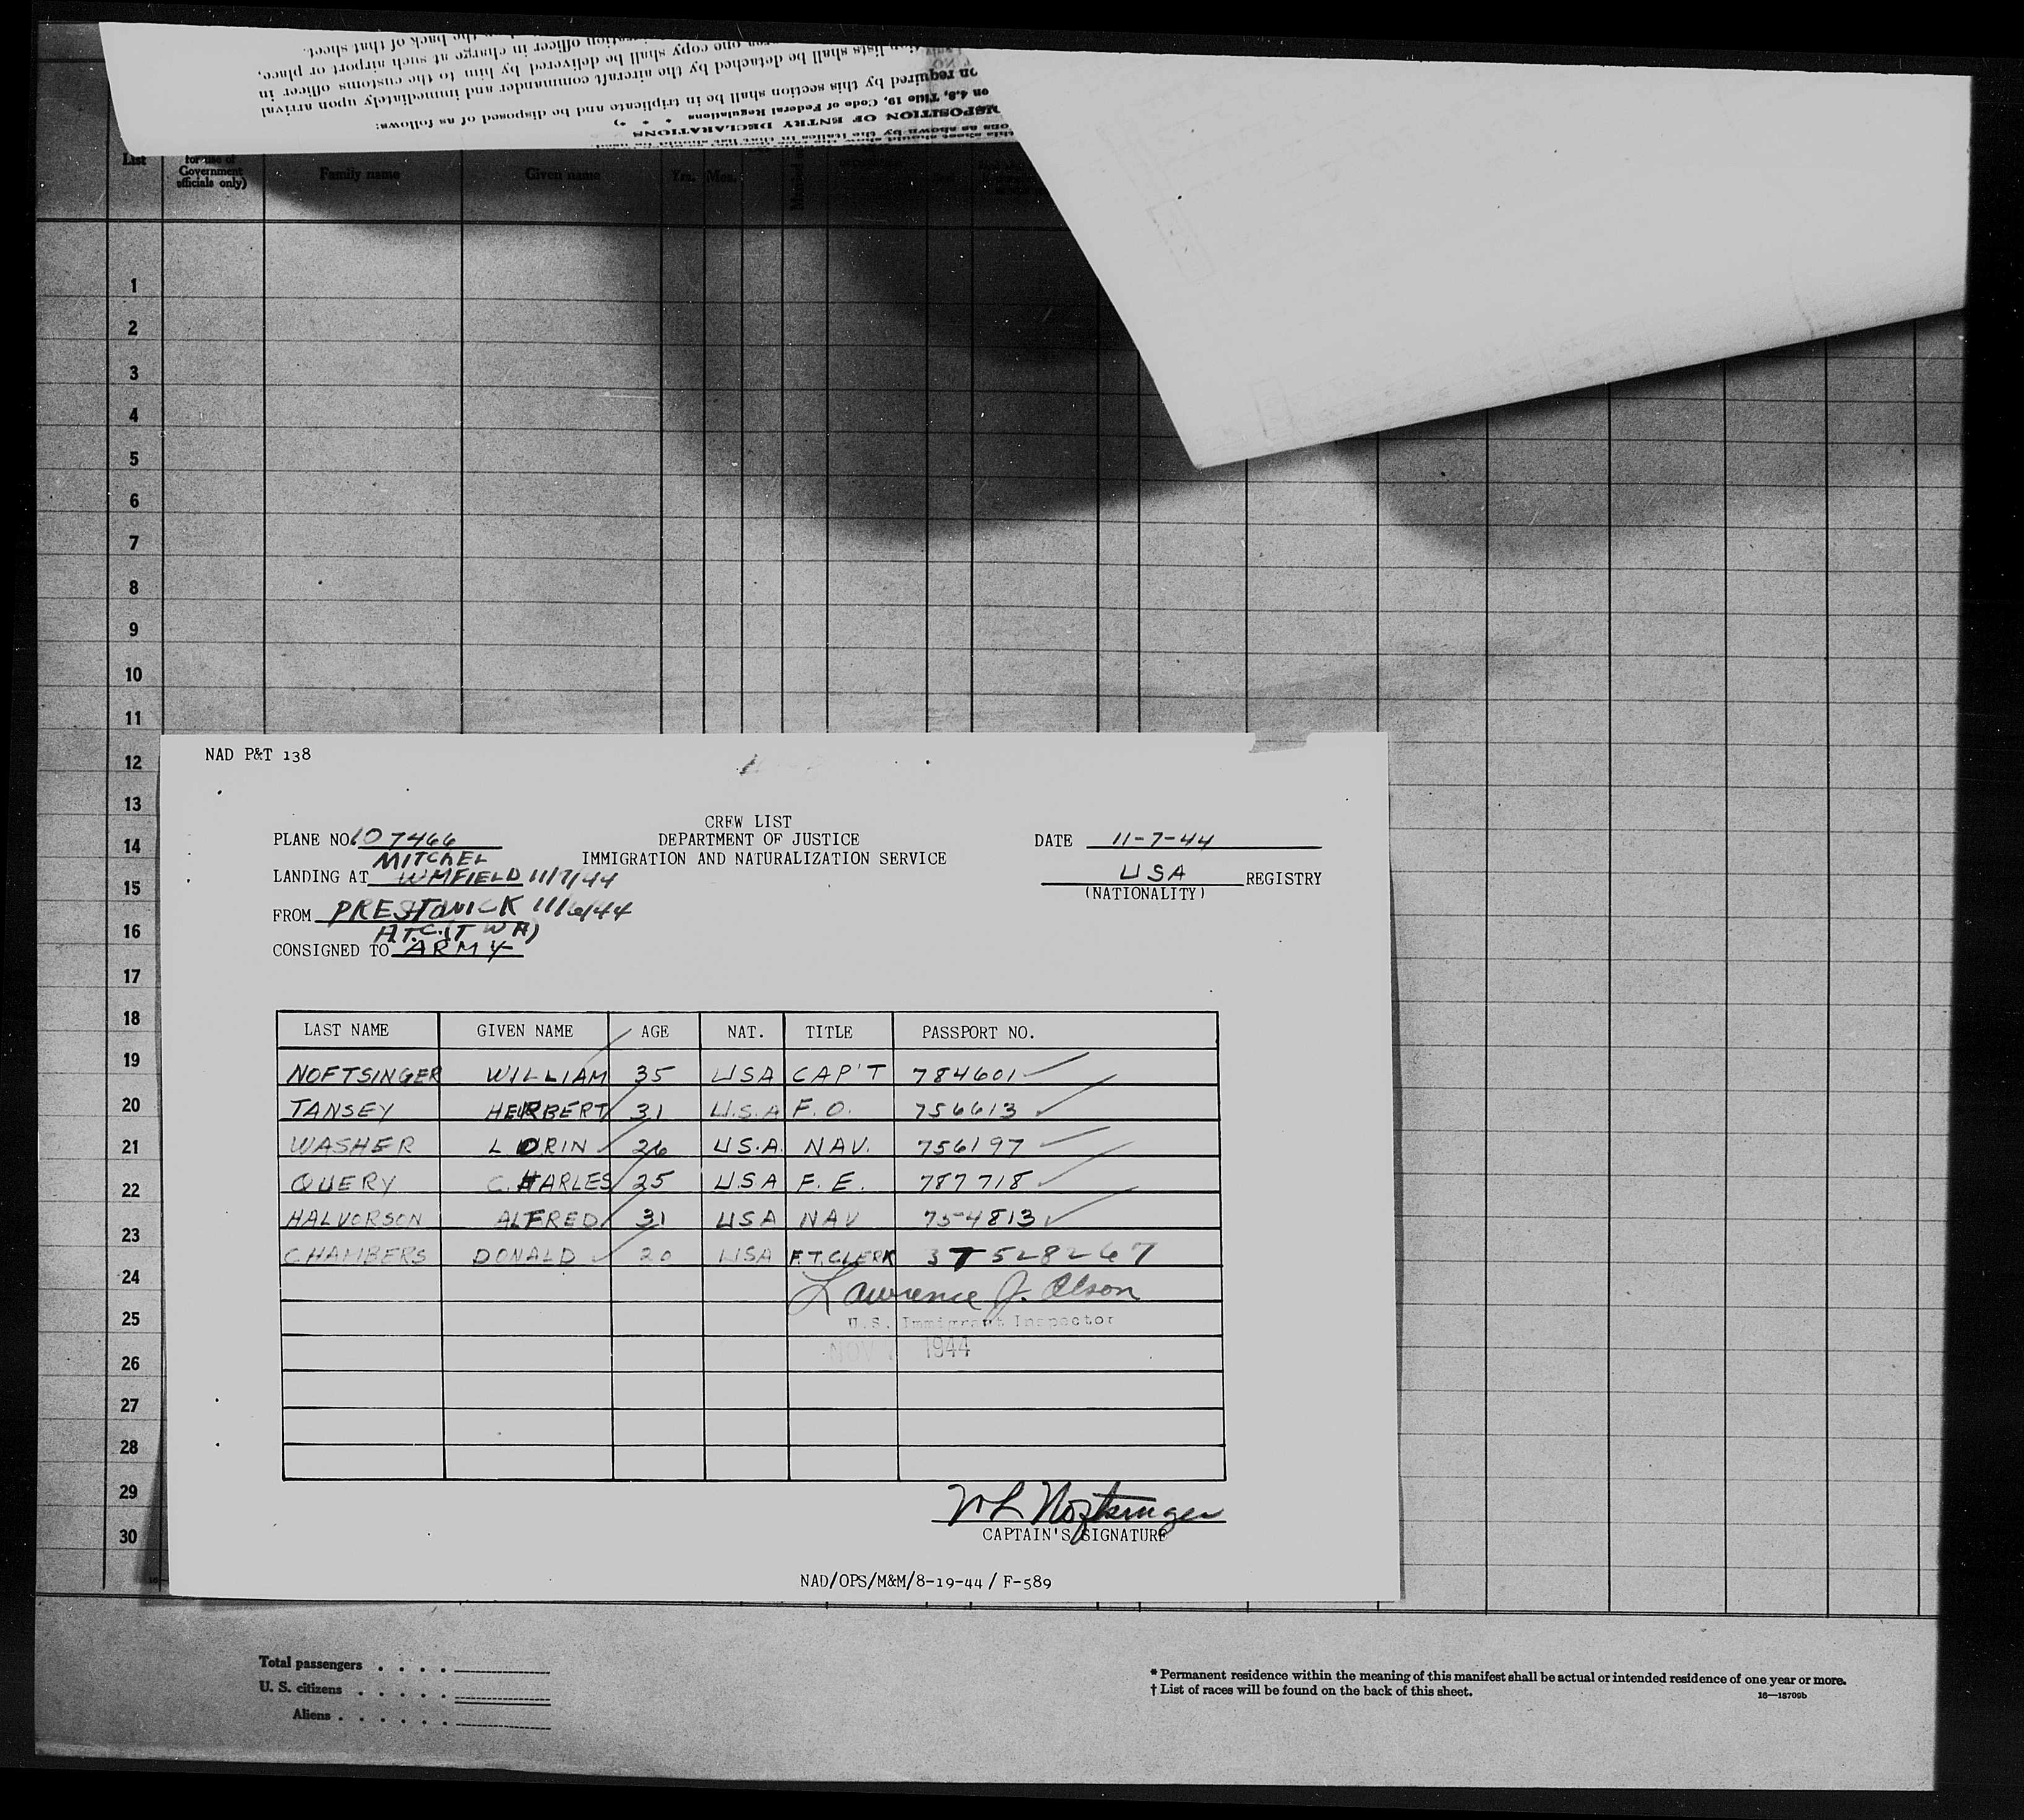 on the back of that sheet.
tion lists shall be detached by the aircraft commander and immediately upon arrival
one copy shall be delivered by him to the customs officer in
officer in charge at such airport or place,
on required by this section shall be in triplicate and be disposed of as follows:
on 4.8, Title 19, Code of Federal Regulations * * *)
DISPOSITION OF ENTRY DECLARATIONS
List
for use of
Government
officials only)
Family name
Given name
Yrs.
Mos.
1
2
3
4
5
6
7
8
9
10
11
12
13
14
15
16
17
18
19
20
21
22
23
24
25
26
27
28
29
30
NAD P&T 138
CREW LIST
DEPARTMENT OF JUSTICE
IMMIGRATION AND NATURALIZATION SERVICE
PLANE NO 107466
MITCHEL
LANDING AT WMFIELD 11/7/44
FROM PRESTWICK 11/6/44
A.T.C. (TWA)
CONSIGNED TO ARMY
DATE 11-7-44
USA REGISTRY
(NATIONALITY)
LAST NAME GIVEN NAME AGE NAT. TITLE PASSPORT NO.
NOFTSINGER WILLIAM 35 USA CAP'T 784601
TANSEY HERBERT 31 U.S.A F.O. 756613
WASHER LORIN 26 U.S.A. NAV. 756197
QUERY CHARLES 25 USA F.E. 787718
HALVORSON ALFRED 31 USA NAV 754813
CHAMBERS DONALD 20 USA F.T.CLERK 37528267
Lawrence J. Olson
U.S. Immigrant Inspector
NOV 1944
W L Noftsinger
CAPTAIN'S SIGNATURE
NAD/OPS/M&M/8-19-44/ F-589
Total passengers . . . .
U. S. citizens . . . . .
Aliens . . . . . .
* Permanent residence within the meaning of this manifest shall be actual or intended residence of one year or more.
† List of races will be found on the back of this sheet.
16—18709b